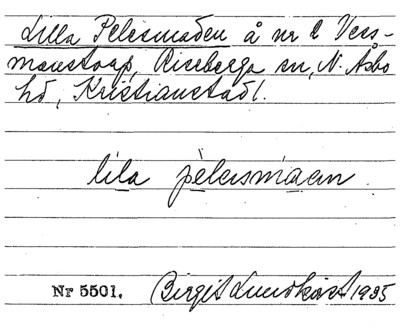 Lilla Pelesmaden å nr 2 Vess-
manstorp, Riseberga sn, N. Åsbo
hd, Kristianstad l.
lila pèlesmaen
Nr 5501. Birgit Lundkvist 1935